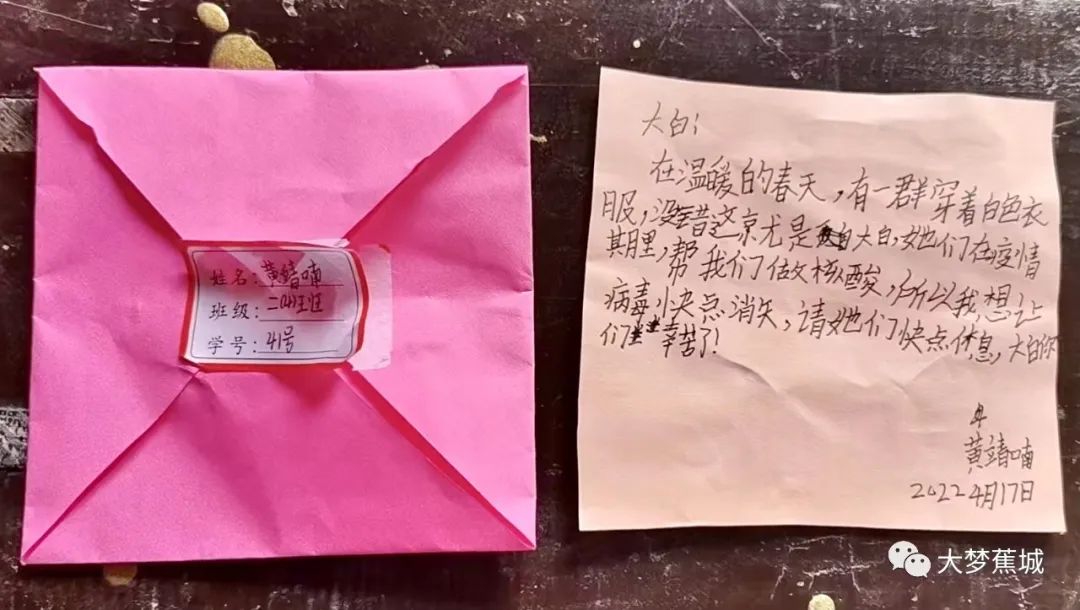 姓名:黄靖喃
班级:二(4)班
学号:41号
大白:
在温暖的春天,有一群穿着白色衣
服,没错这就是大白,她们在疫情
期里,帮我们做核酸,所以我想让
病毒快点消失,请她们快点休息,大白你
们幸苦了!
黄靖喃
2022 4月17日
大梦蕉城